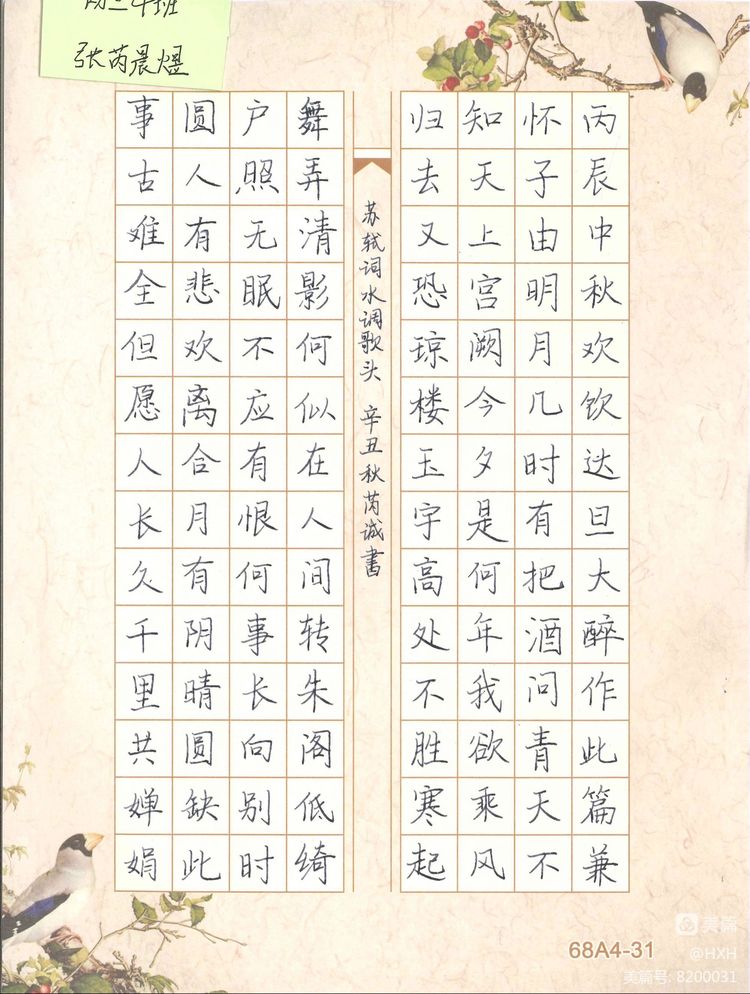 张芮晨煜
丙辰中秋欢饮达旦大醉作此篇兼
怀子由明月几时有把酒问青天不
知天上宫阙今夕是何年我欲乘风
归去又恐琼楼玉宇高处不胜寒起
苏轼词水调歌头 辛丑秋芮诚书
舞弄清影何似在人间转朱阁低绮
户照无眠不应有恨何事长向别时
圆人有悲欢离合月有阴晴圆缺此
事古难全但愿人长久千里共婵娟
68A4-31
美篇
@HXH
美篇号: 8200031